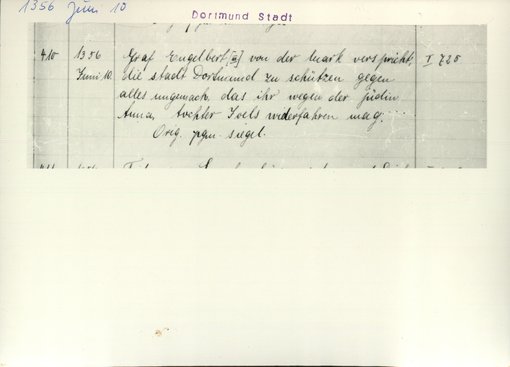 1356 Juni 10
Dortmund Stadt
410 1356 Graf Engelbert [III] von der Mark verspricht, I 725
Juni 10. die stadt Dortmund zu schützen gegen
alles ungemach, das ihr wegen der jüdin
Anna, tochter Ioels widerfahren mag.
Orig. pgm. siegel.